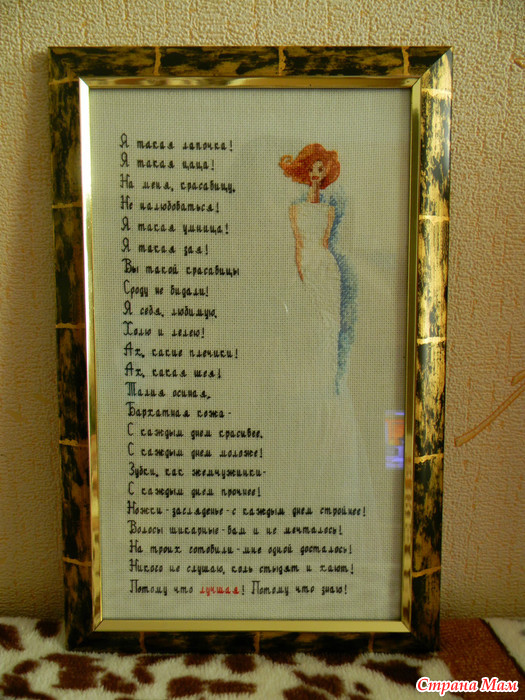 Я такая лапочка!
Я такая цаца!
На меня, красавицу,
Не налюбоваться!
Я такая умница!
Я такая зая!
Вы такой красавицы
Сроду не видали!
Я себя, любимую,
Холю и лелею!
Ах, какие плечики!
Ах, какая шея!
Талия осиная,
Бархатная кожа-
С каждым днем красивее,
С каждым днем моложе!
Зубки, как жемчужинки-
С каждым днем прочнее!
Ножки-загляденье-с каждым днем стройнее!
Волосы шикарные-вам и не мечталось!
На троих готовили-мне одной досталось!
Никого не слушаю, коль стыдят и хают!
Потому что лучшая! Потому что знаю!
Страна Мам